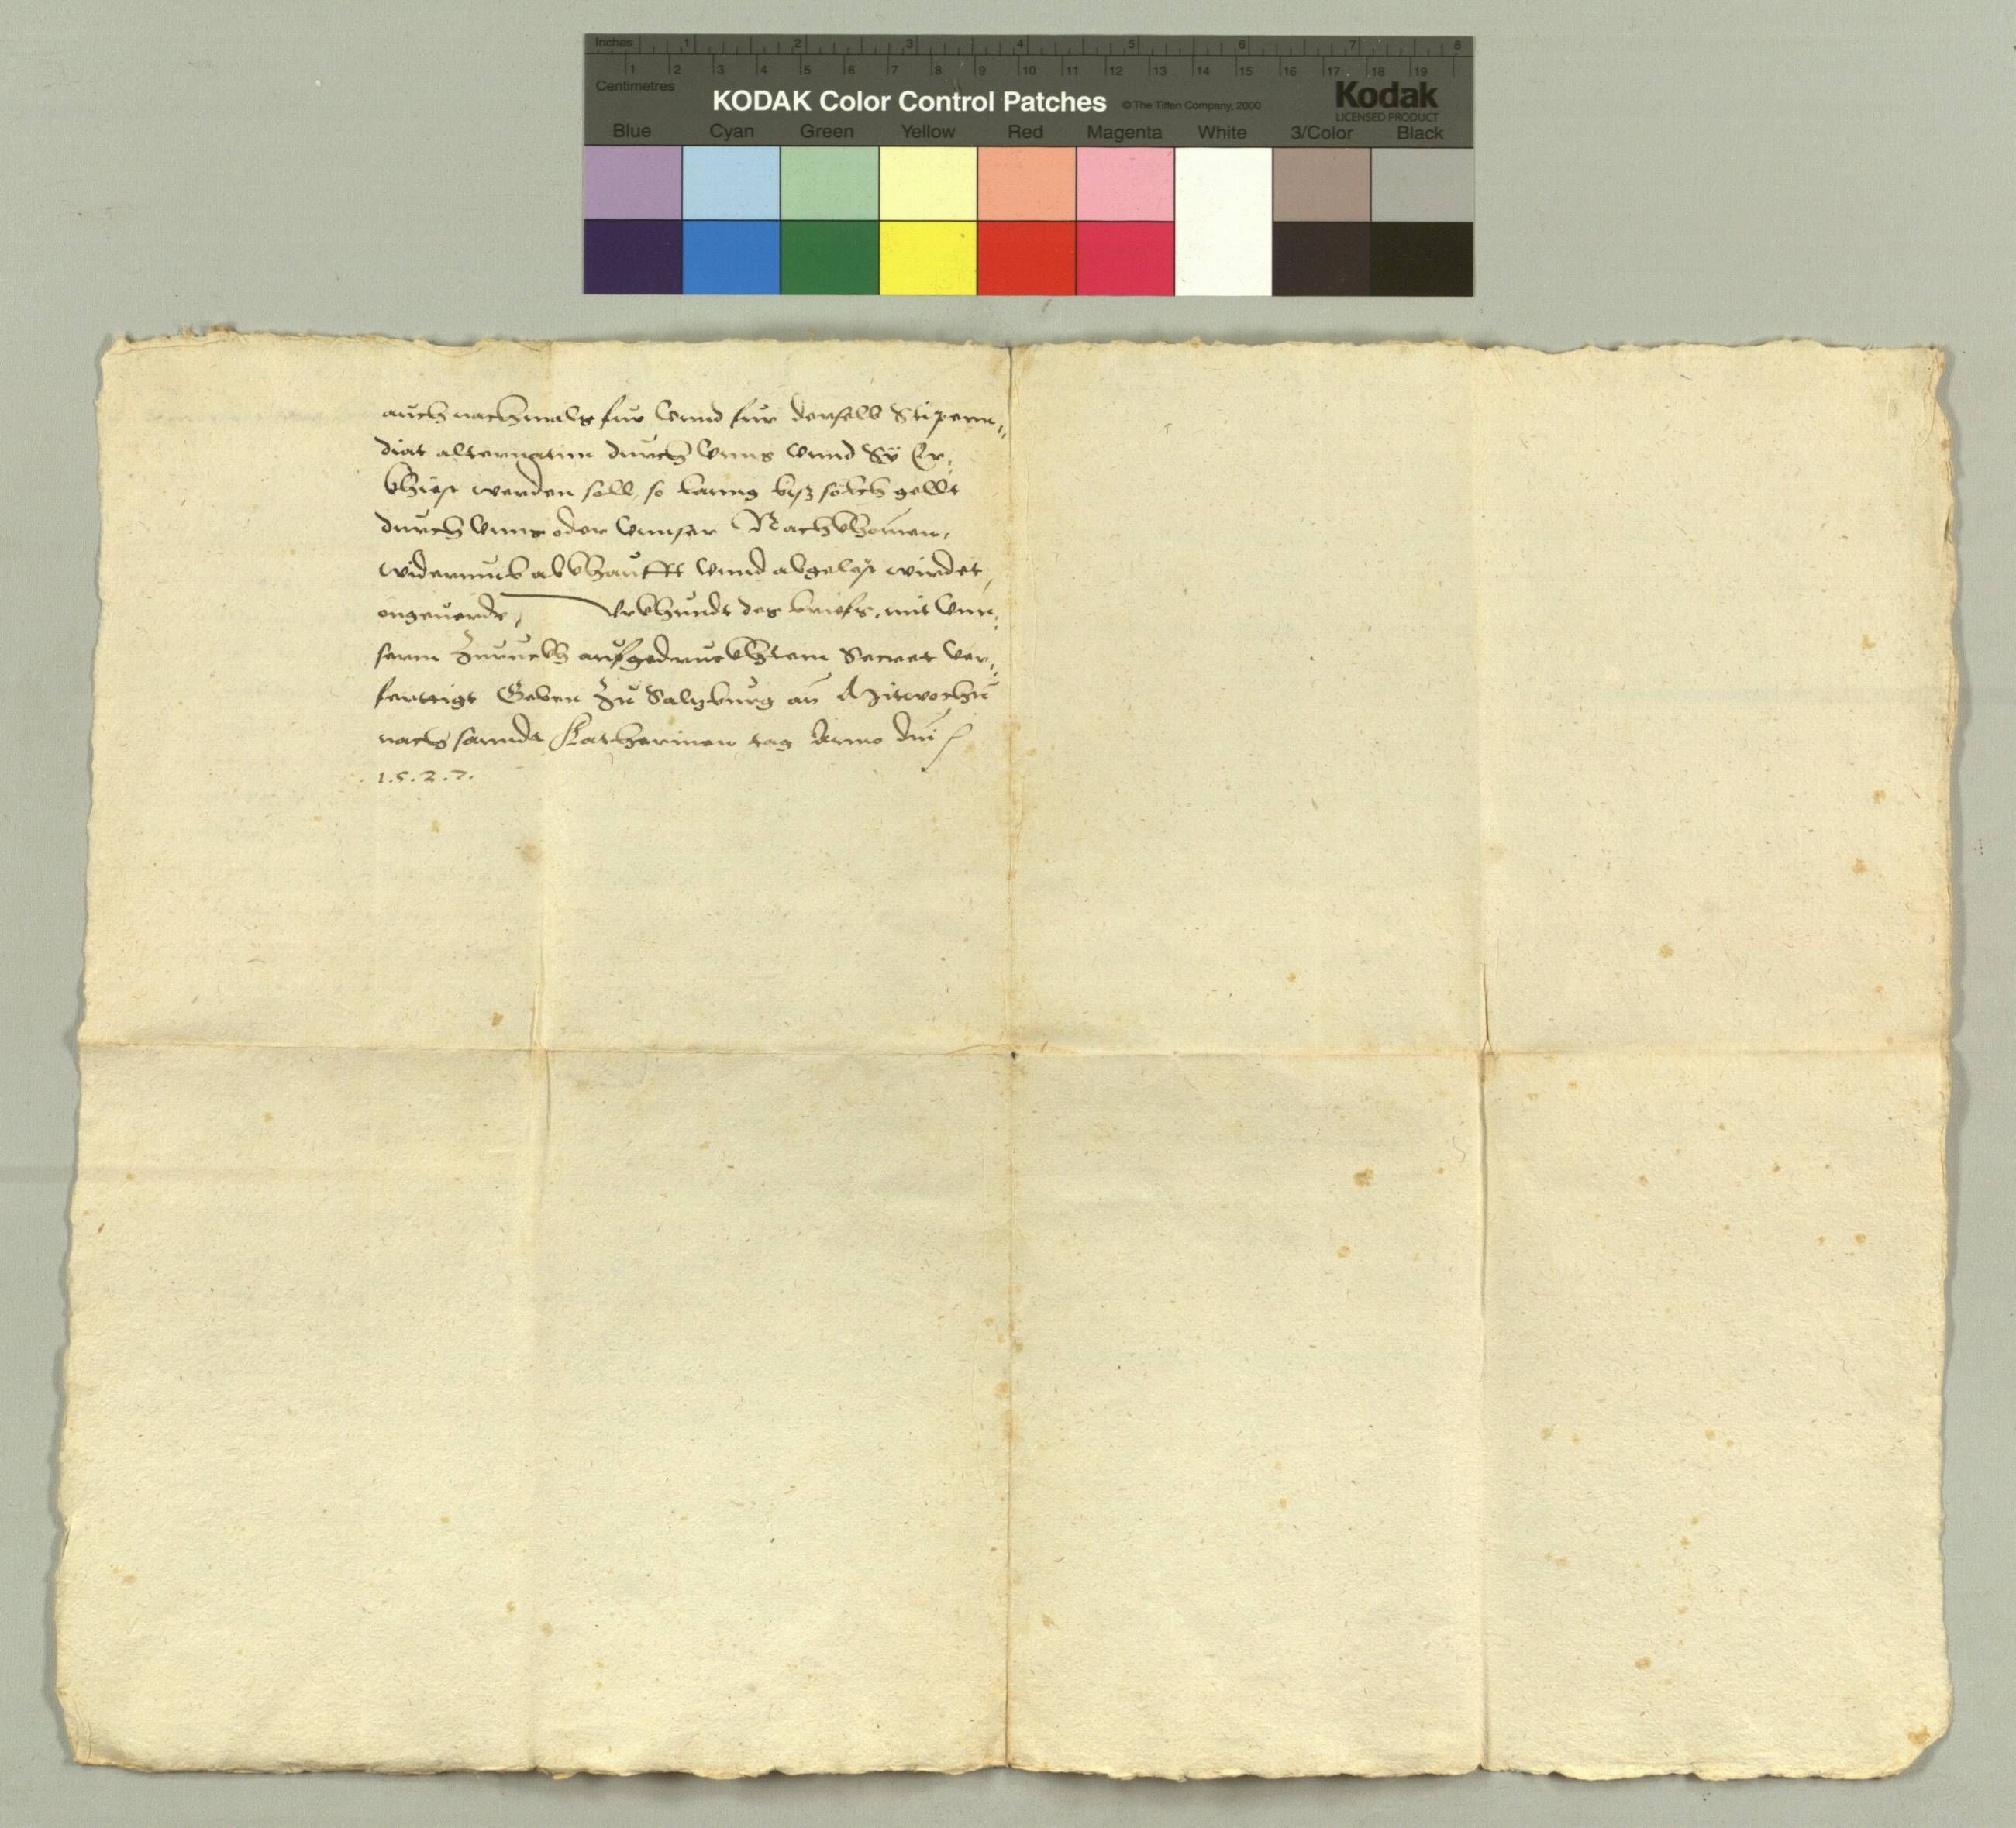 Inches 1 2 3 4 5 6 7 8
1 2 3 4 5 6 7 8 9 10 11 12 13 14 15 16 17 18 19
Centimetres
KODAK Color Control Patches © The Tiffen Company, 2000 Kodak
LICENSED PRODUCT
Blue Cyan Green Yellow Red Magenta White 3/Color Black
auch nachmals fur vnnd fur derselb Stipenn„
diat alternatim durch vnns vnnd Sÿ Er„
khiest werden soll, so lanng bisz solch gellt
durch vnns oder vnnser Nachkhomen,
widerumb abkhaufft vnnd abgelost wirdet,
ongeuerde, Vrkhundt des briefs, mit vnn„
serm zuruckh aufgedruckhtem Secret ver„
fertigt Geben zu Salzburg an Mitwochn
nach sannd Katherinen tag Anno dni
1.5.2.7.